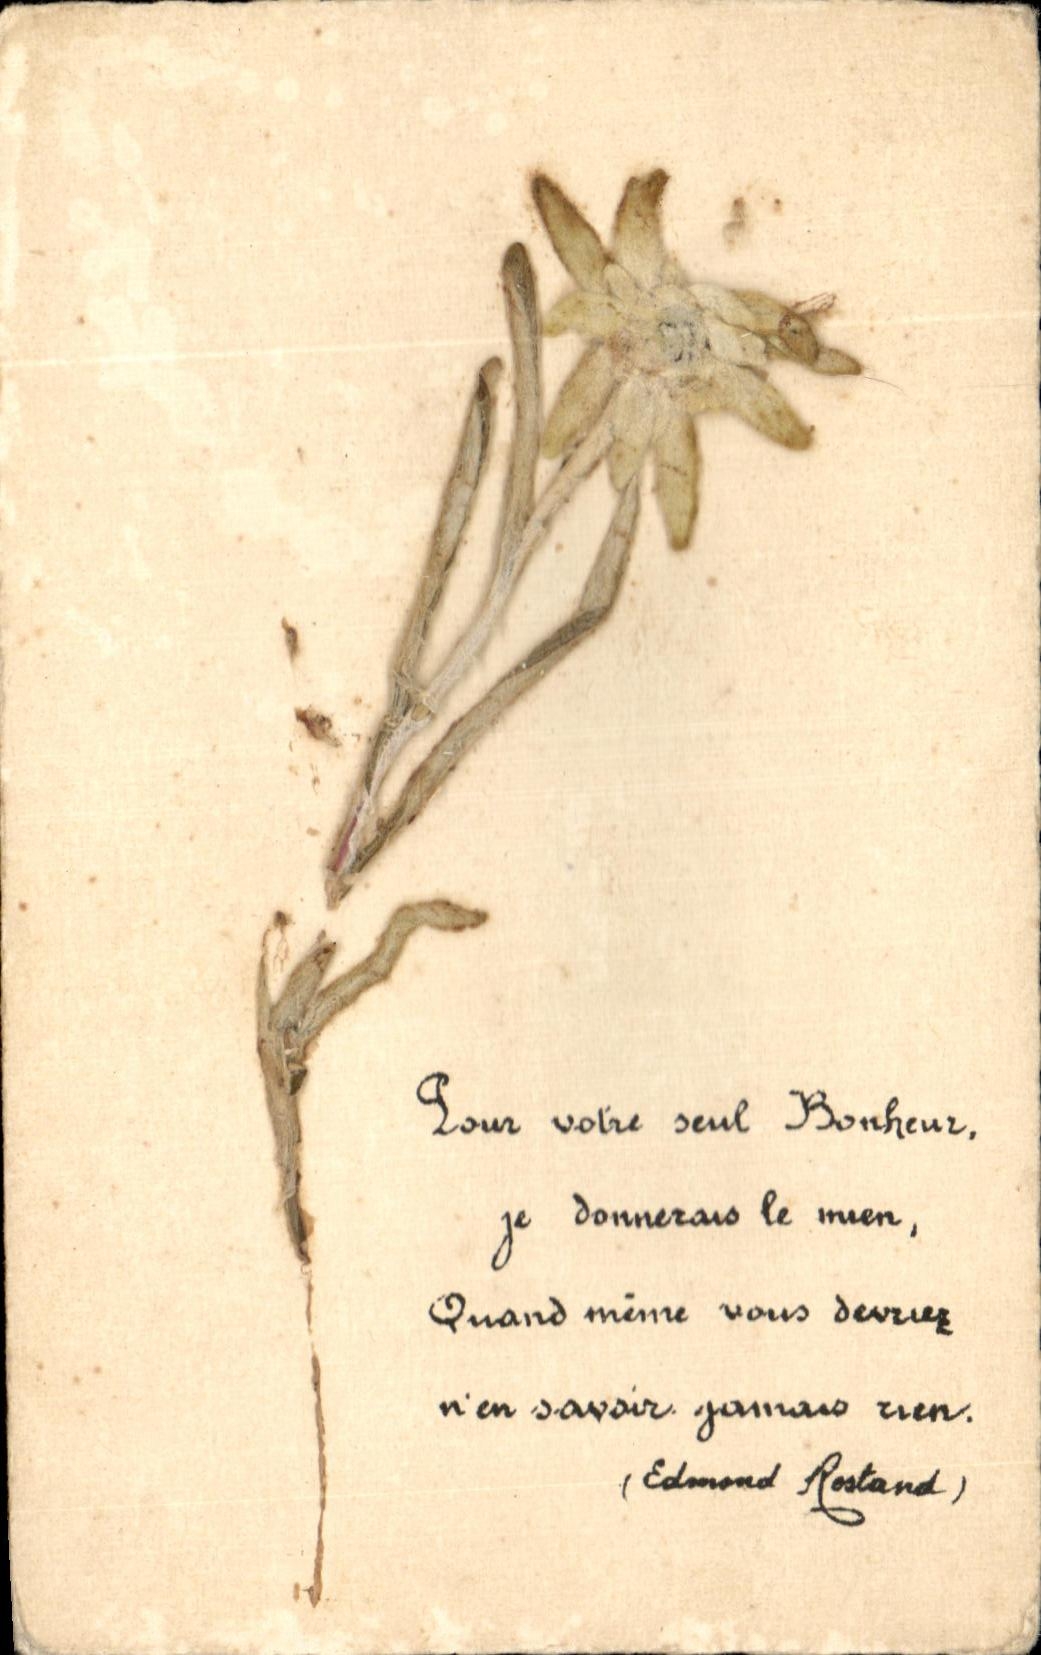 Pour votre seul Bonheur,
je donnerais le mien,
Quand même vous devriez
n'en savoir jamais rien.
(Edmond Rostand)